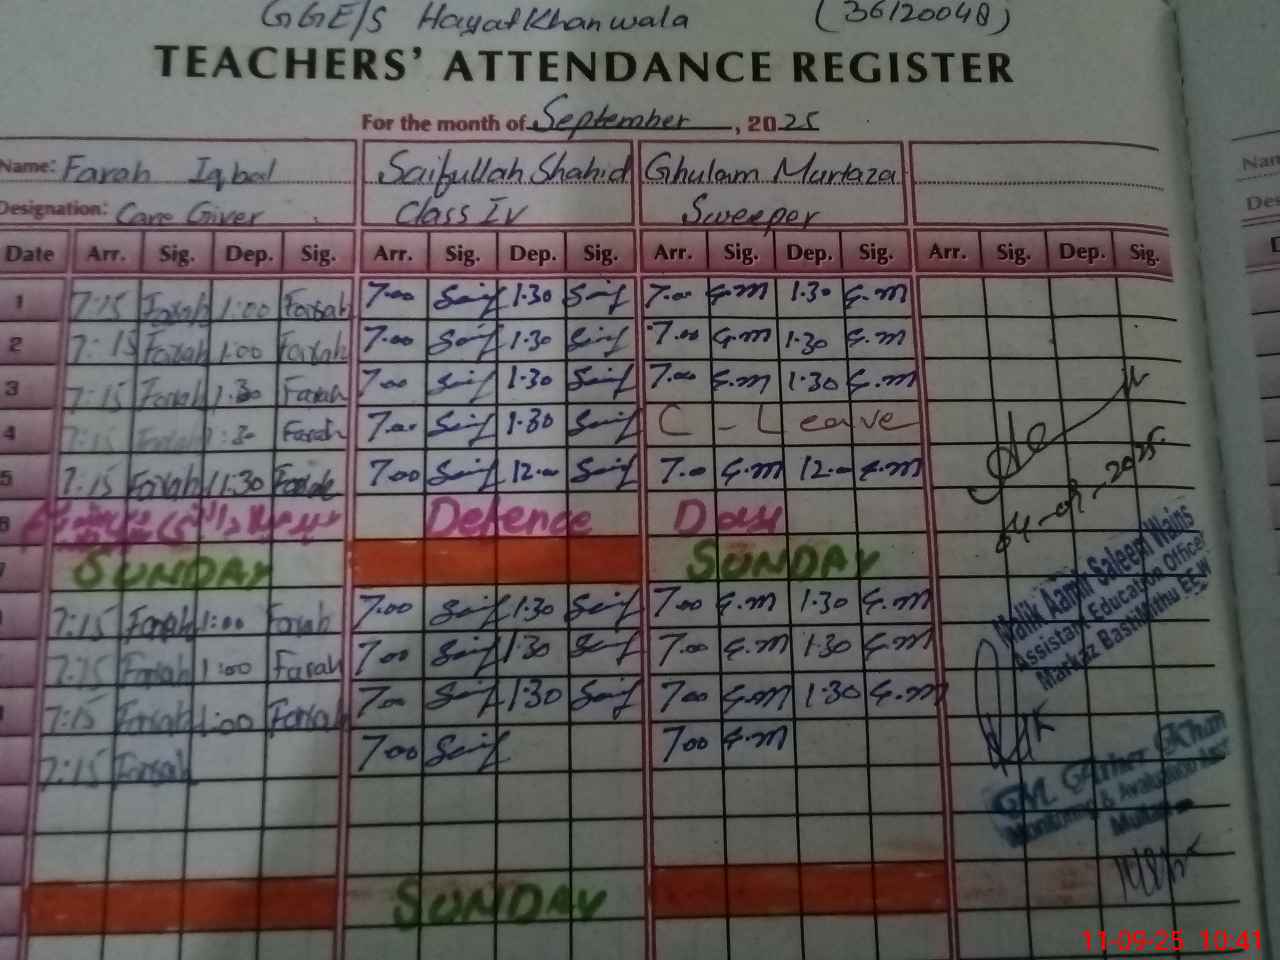 GGE/S Hayat Khan wala (36120048)
TEACHERS' ATTENDANCE REGISTER
For the month of September, 2025
Name: Farah Iqbal Saifullah Shahid Ghulam Murtaza
Designation: Care Giver Class IV Sweeper
Date Arr. Sig. Dep. Sig. Arr. Sig. Dep. Sig. Arr. Sig. Dep. Sig. Arr. Sig. Dep. Sig.
1 7:15 Farah 1:00 Farah 7.00 Saif 1.30 Saif 7.00 G.m 1.30 G.m
2 7:15 Farah 1:00 Farah 7.00 Saif 1.30 Saif 7.00 G.m 1.30 G.m
3 7:15 Farah 1:30 Farah 7.00 Saif 1.30 Saif 7.00 G.m 1.30 G.m
4 7:15 Farah 1:30 Farah 7.00 Saif 1.30 Saif C - Leave
5 7:15 Farah 11:30 Farah 7.00 Saif 12.00 Saif 7.00 G.m 12.00 G.m
6 Defence Day
7 SUNDAY SUNDAY
7:15 Farah 1:00 Farah 7.00 Saif 1.30 Saif 7.00 G.m 1.30 G.m
7:15 Farah 1:00 Farah 7.00 Saif 1.30 Saif 7.00 G.m 1.30 G.m
7:15 Farah 1:00 Farah 7.00 Saif 1.30 Saif 7.00 G.m 1.30 G.m
7:15 Farah 7.00 Saif 7.00 G.m
SUNDAY
04-09-2025
Malik Aamir Saleem Wains
Assistant Education Officer
Markaz Basti Mithu EE-W
Khan
Monitoring & Evaluation Asst
Multan
11-09-25 10:41